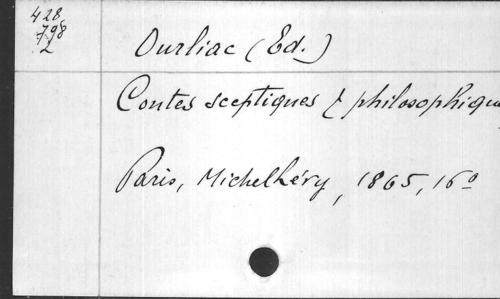 428
798
2
Ourliac (Ed.)
Contes sceptiques & philosophiqu
Paris, Michel Lévy, 1865, 16º